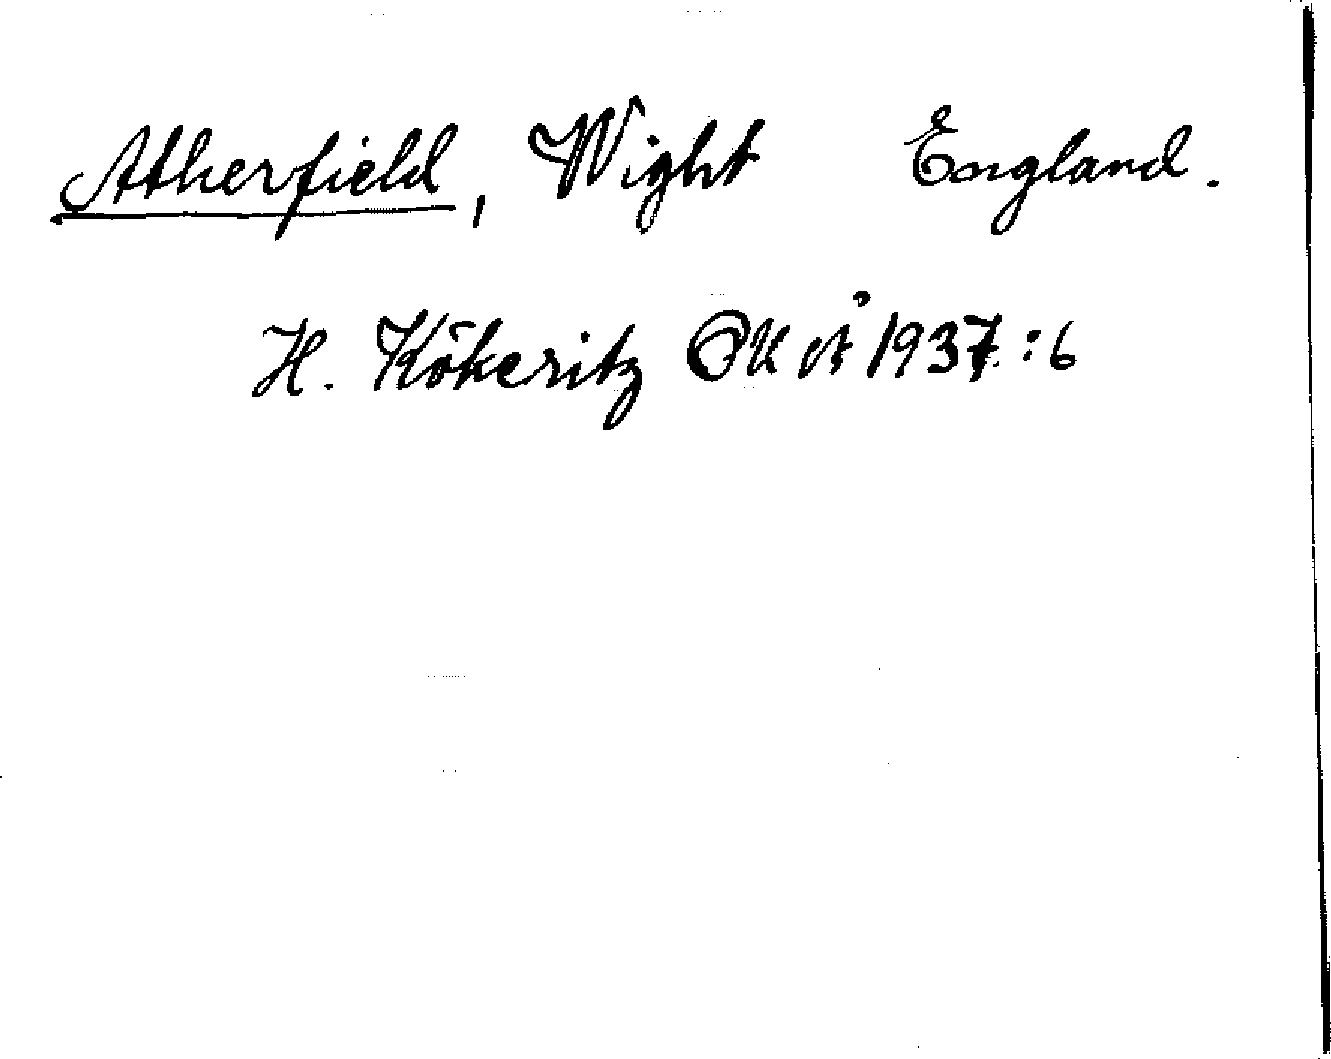 Atherfield, Wight England.
H. Kökeritz OUÅ 1937:6